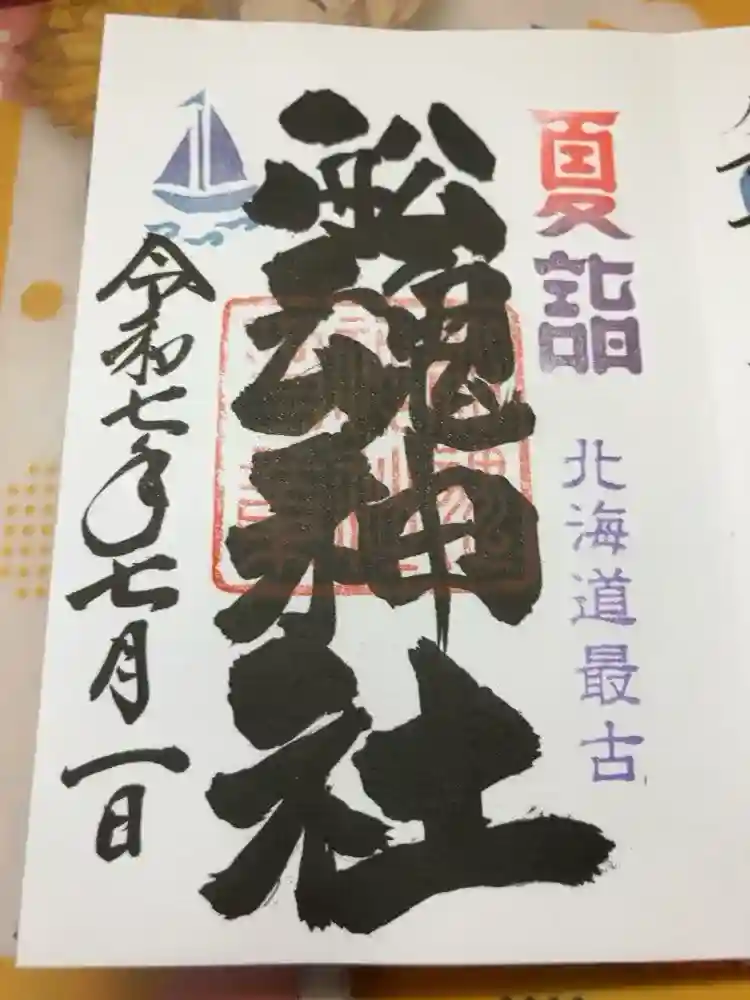 夏詣
北海道最古
船魂神社
令和七年七月一日